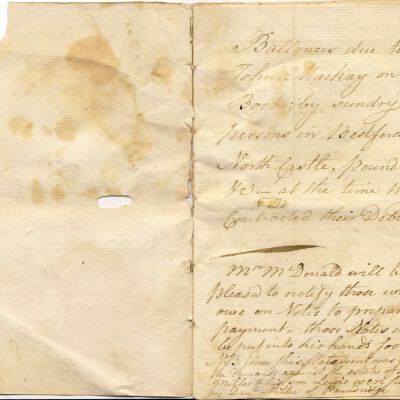 Ballances due to
John Mackay on
Book; by sundry
persons in Bedford
North Castle, Pound
&c — at the time th
Contracted their Deb
Mr McDonald will be
pleased to notify those w
owe on Notes to prepar
payment, those Notes w
be put into his hands soo
NB Since this Statement was
the demands against the estates of
Miller & his son Lewis were
by Danl Miller of Poundridge